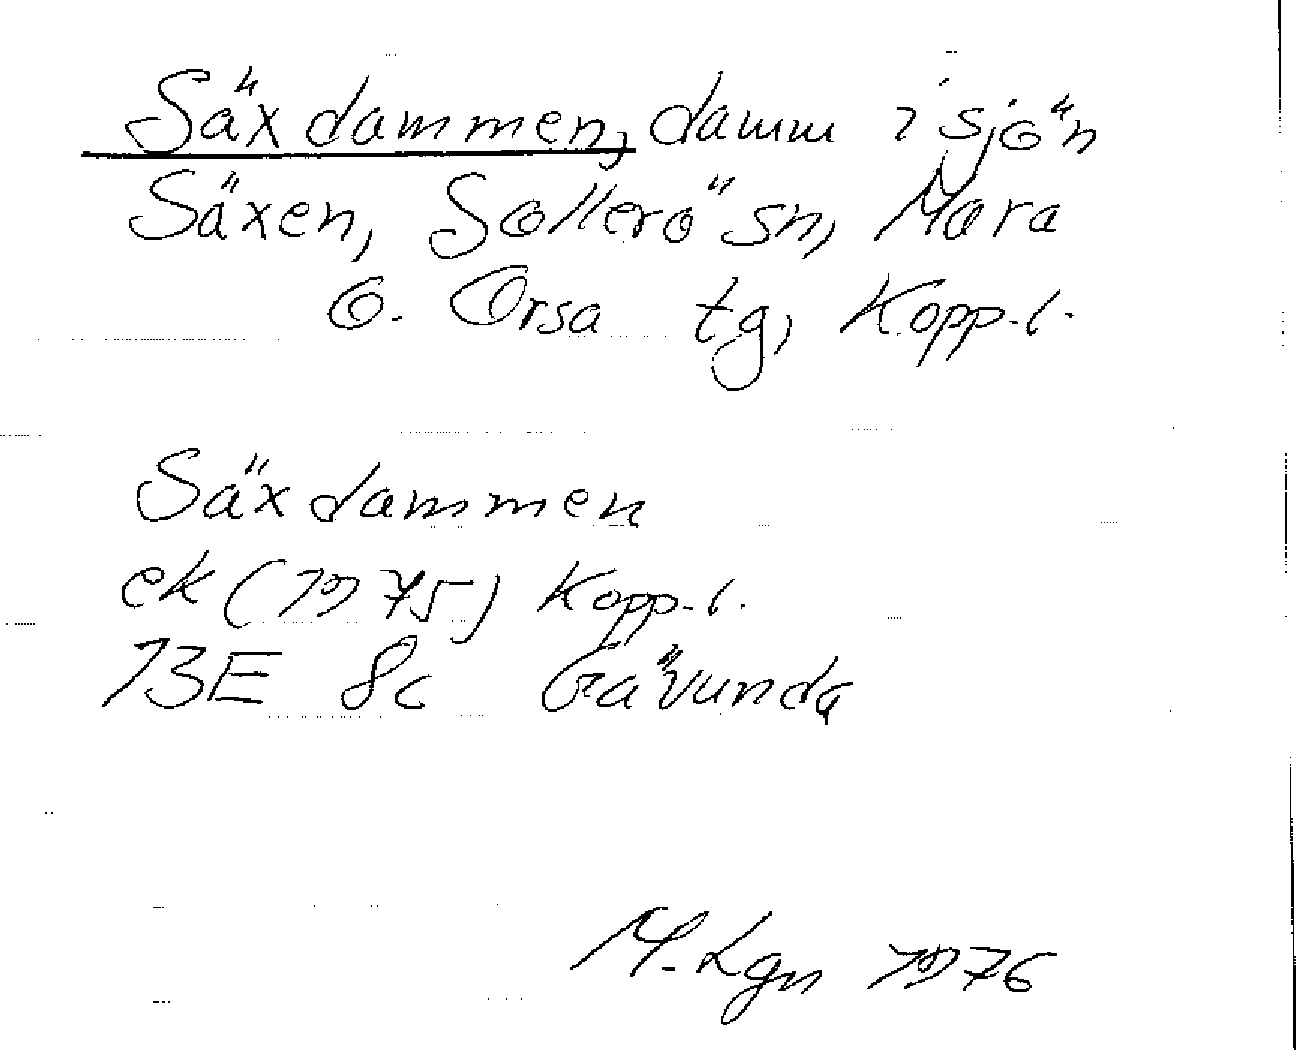 Säxdammen, damm i sjön
Säxen, Sollerö sn, Mora
o. Orsa tg, Kopp. l.
Säxdammen
ek (1975) Kopp. l.
13E 8c Gävunda
M. Lgn 1976